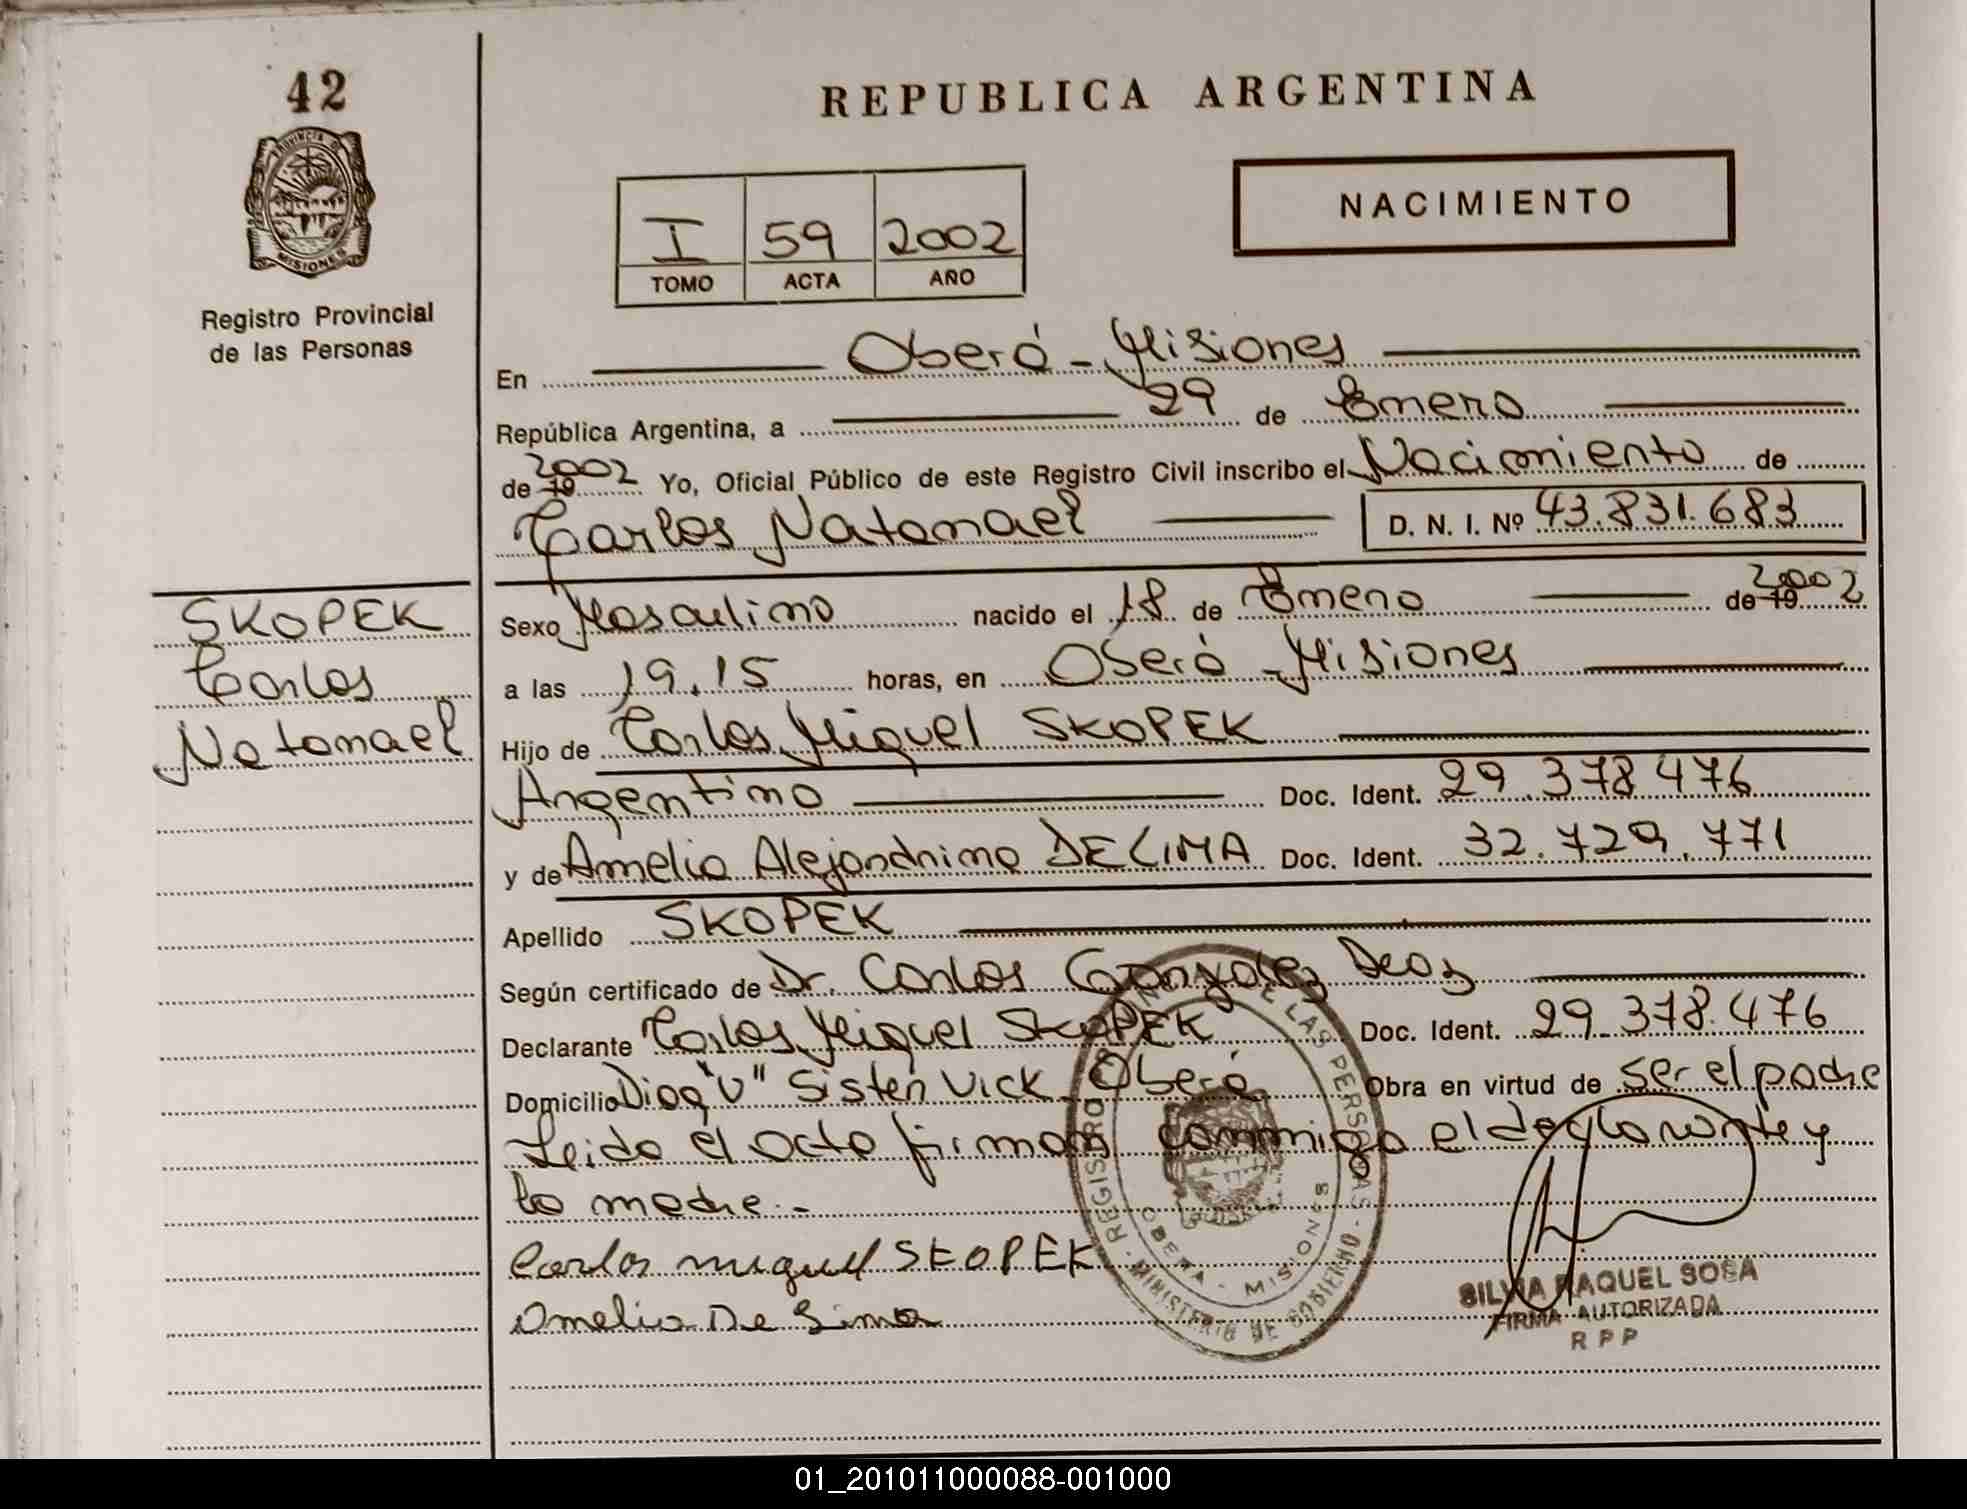 42
PROVINCIA DE
MISIONES
Registro Provincial
de las Personas
SKOPEK
Carlos
Natanael
REPUBLICA ARGENTINA
I 59 2002
TOMO ACTA AÑO
NACIMIENTO
En Oberá - Misiones
República Argentina, a 29 de Enero
de 19 2002 Yo, Oficial Público de este Registro Civil inscribo el Nacimiento de
Carlos Natanael D. N. I. Nº 43.831.683
Sexo Masculino nacido el 18 de Enero de 19 2002
a las 19.15 horas, en Oberá - Misiones
Hijo de Carlos Miguel SKOPEK
Argentino Doc. Ident. 29.378.476
y de Amelia Alejandrina DE LIMA Doc. Ident. 32.729.771
Apellido SKOPEK
Según certificado de Dr. Carlos Gonzalez
Declarante Carlos Miguel SKOPEK Doc. Ident. 29.378.476
Domicilio "V" Sisten Vick Oberá Obra en virtud de ser el padre
Leida el acta firman conmigo el declarante y
la madre.-
Carlos miguel SKOPEK
Amelia De Lima
REGISTRO PROVINCIAL DE LAS PERSONAS
OBERA - MISIONES
MINISTERIO DE GOBIERNO
SILVIA RAQUEL SOSA
FIRMA AUTORIZADA
R P P
01_201011000088-001000